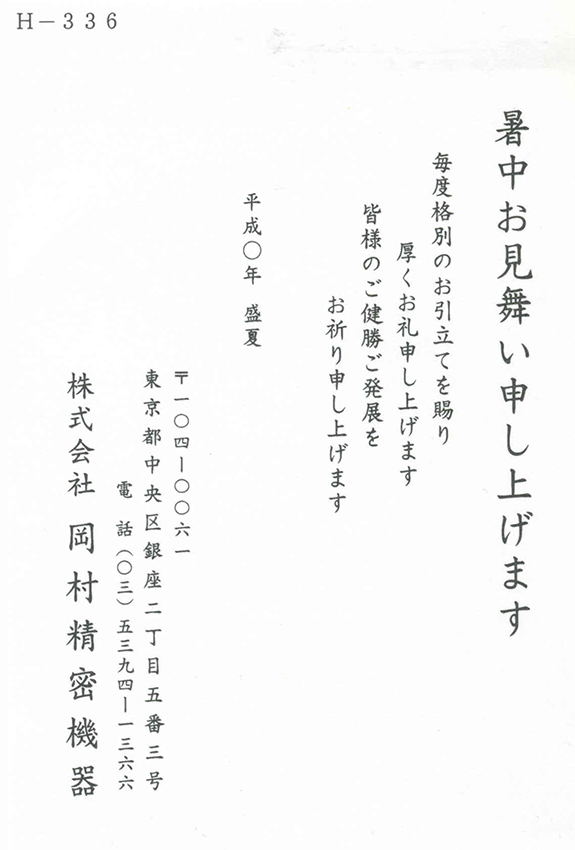 H-336
暑中お見舞い申し上げます
毎度格別のお引立てを賜り
厚くお礼申し上げます
皆様のご健勝ご発展を
お祈り申し上げます
平成〇年 盛夏
〒一〇四ー〇〇六一
東京都中央区銀座二丁目五番三号
電 話(〇三)五三九四ー一三六六
株式会社 岡村精密機器